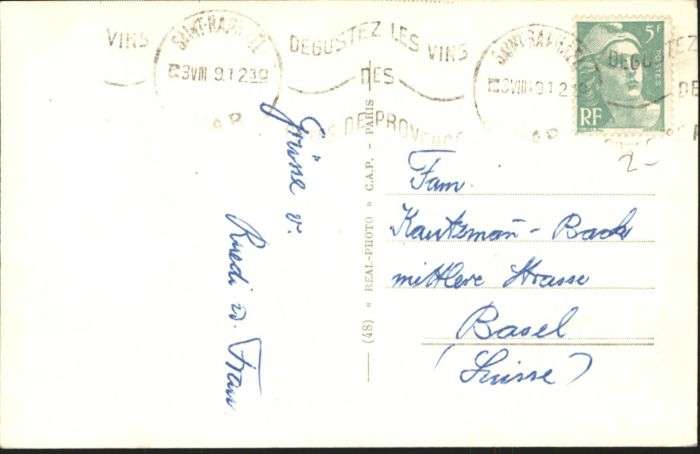 VINS
SAINT-RAPHAËL
DEGUSTEZ LES VINS
DES
DE PROVENCE
SAINT-RAPHAËL
DEGUSTEZ
DE
5F
RF
2-
Grüsse v.
Ruedi u. Frau
(48) « REAL-PHOTO » C.A.P. - PARIS
Fam.
Kautzmañ-Bach
mittlere Strasse
Basel
(Suisse)